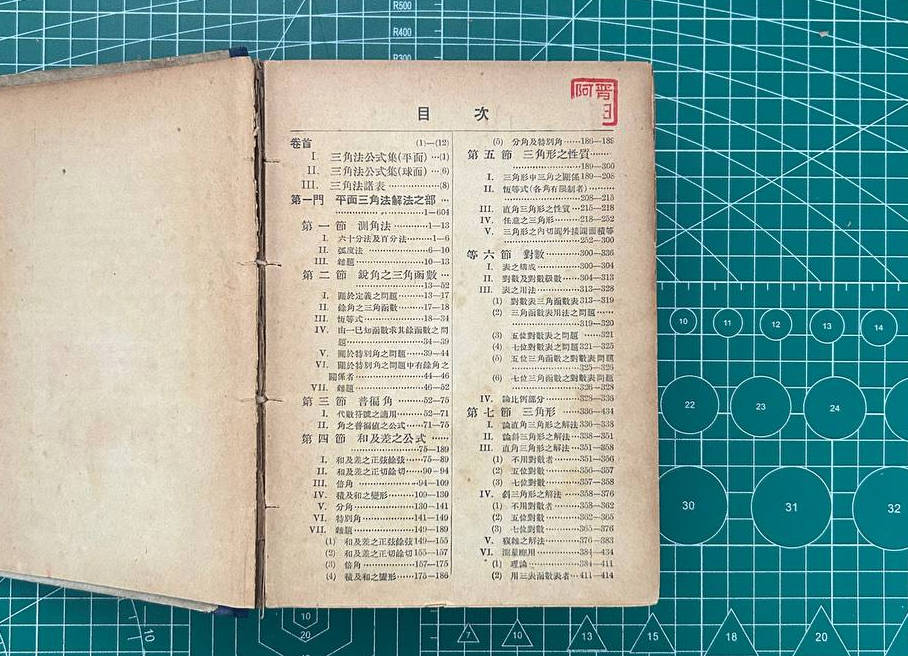 R500
R400
R300
阿胥
目 次
卷首 (1)—(12)
I. 三角法公式集(平面) …(1)
II. 三角法公式集(球面) …6)
III. 三角法諸表 …………(8)
第一門 平面三角法解法之部 …
…………1—604
第一節 測角法 …………1—13
I. 六十分法及百分法 …………1—6
II. 弧度法 …………6—10
III. 雜題 …………10—13
第二節 銳角之三角函數 …
…………13—52
I. 關於定義之問題 …………13—17
II. 餘角之三角函數 …………17—18
III. 恆等式 …………18—34
IV. 由一已知函數求其餘函數之問
題 …………34—39
V. 關於特別角之問題 …………39—44
VI. 關於特別角之問題中有餘角之
關係者 …………44—46
VII. 雜題 …………46—52
第三節 普徧角 …………52—75
I. 代數符號之適用 …………52—71
II. 角之普徧值之公式 …71—75
第四節 和及差之公式 ……
…………75—189
I. 和及差之正弦餘弦 …75—89
II. 和及差之正切餘切 …90—94
III. 倍角 …………94—109
IV. 積及和之變形 …………109—130
V. 分角 …………130—141
VI. 特別角 …………141—149
VII. 雜題 …………149—189
(1) 和及差之正弦餘弦149—155
(2) 和及差之正切餘切155—157
(3) 倍角 …………157—175
(4) 積及和之變形 ……175—186
(5) 分角及特別角 ……186—189
第五節 三角形之性質 ……
…………189—300
I. 三角形中三角之關係189—208
II. 恆等式(各角有限制者) ……
…………208—215
III. 直角三角形之性質 …215—218
IV. 任意之三角形 …………218—252
V. 三角形之內切圓外接圓面積等
…………252—300
等六節 對數 …………300—336
I. 表之構成 …………300—304
II. 對數及對數級數 …………304—313
III. 表之用法 …………313—328
(1) 對數表三角函數表313—319
(2) 三角函數表用法之問題 ……
…………319—320
(3) 五位對數表之問題 ……321
(4) 七位對數表之問題321—325
(5) 五位三角函數之對數表問題
…………325—326
(6) 七位三角函數之對數表問題
…………326—328
IV. 論比例部分 …………328—336
第七節 三角形 …………336—434
I. 論直角三角形之解法336—338
II. 論斜三角形之解法 …338—351
III. 直角三角形之解法 …351—358
(1) 不用對數者 …………351—356
(2) 五位對數 …………356—357
(3) 七位對數 …………357—358
IV. 斜三角形之解法 ……358—376
(1) 不用對數者 …………358—362
(2) 五位對數 …………362—365
(3) 七位對數 …………365—376
之解法 …………376—383
VI. 測量應用 …………384—434
(1) 理論 …………384—411
(2) 用三表函數表者 …411—414
10 11 12 13 14
22 23 24
30 31 32
10
10
20
7 10 13 15 18 20